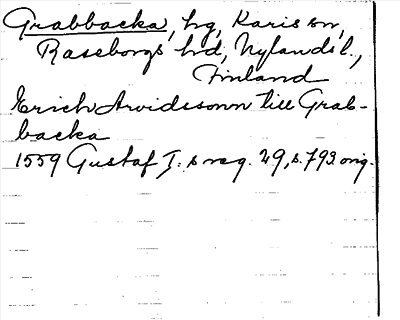 Grabbacka, hg, Karis sn,
Raseborgs hd, Nylands l.,
Finland
Erich Arvidssonn till Grab-
backa
1559 Gustaf I. s reg. 29, s. 793 orig.